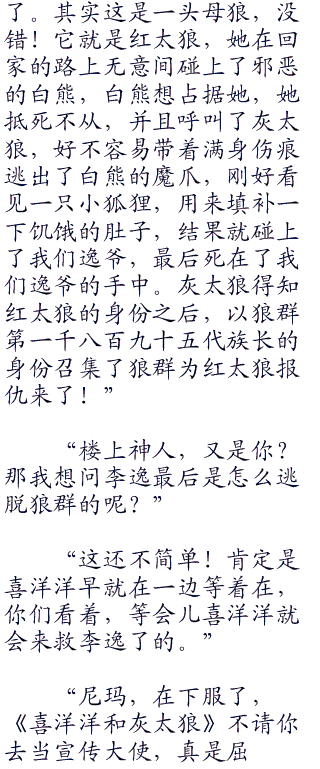 了。其实这是一头母狼，没
错！它就是红太狼，她在回
家的路上无意间碰上了邪恶
的白熊，白熊想占据她，她
抵死不从，并且呼叫了灰太
狼，好不容易带着满身伤痕
逃出了白熊的魔爪，刚好看
见一只小狐狸，用来填补一
下饥饿的肚子，结果就碰上
了我们逸爷，最后死在了我
们逸爷的手中。灰太狼得知
红太狼的身份之后，以狼群
第一千八百九十五代族长的
身份召集了狼群为红太狼报
仇来了！”
“楼上神人，又是你？
那我想问李逸最后是怎么逃
脱狼群的呢？”
“这还不简单！肯定是
喜洋洋早就在一边等着在，
你们看着，等会儿喜洋洋就
会来救李逸了的。”
“尼玛，在下服了，
《喜洋洋和灰太狼》不请你
去当宣传大使，真是屈